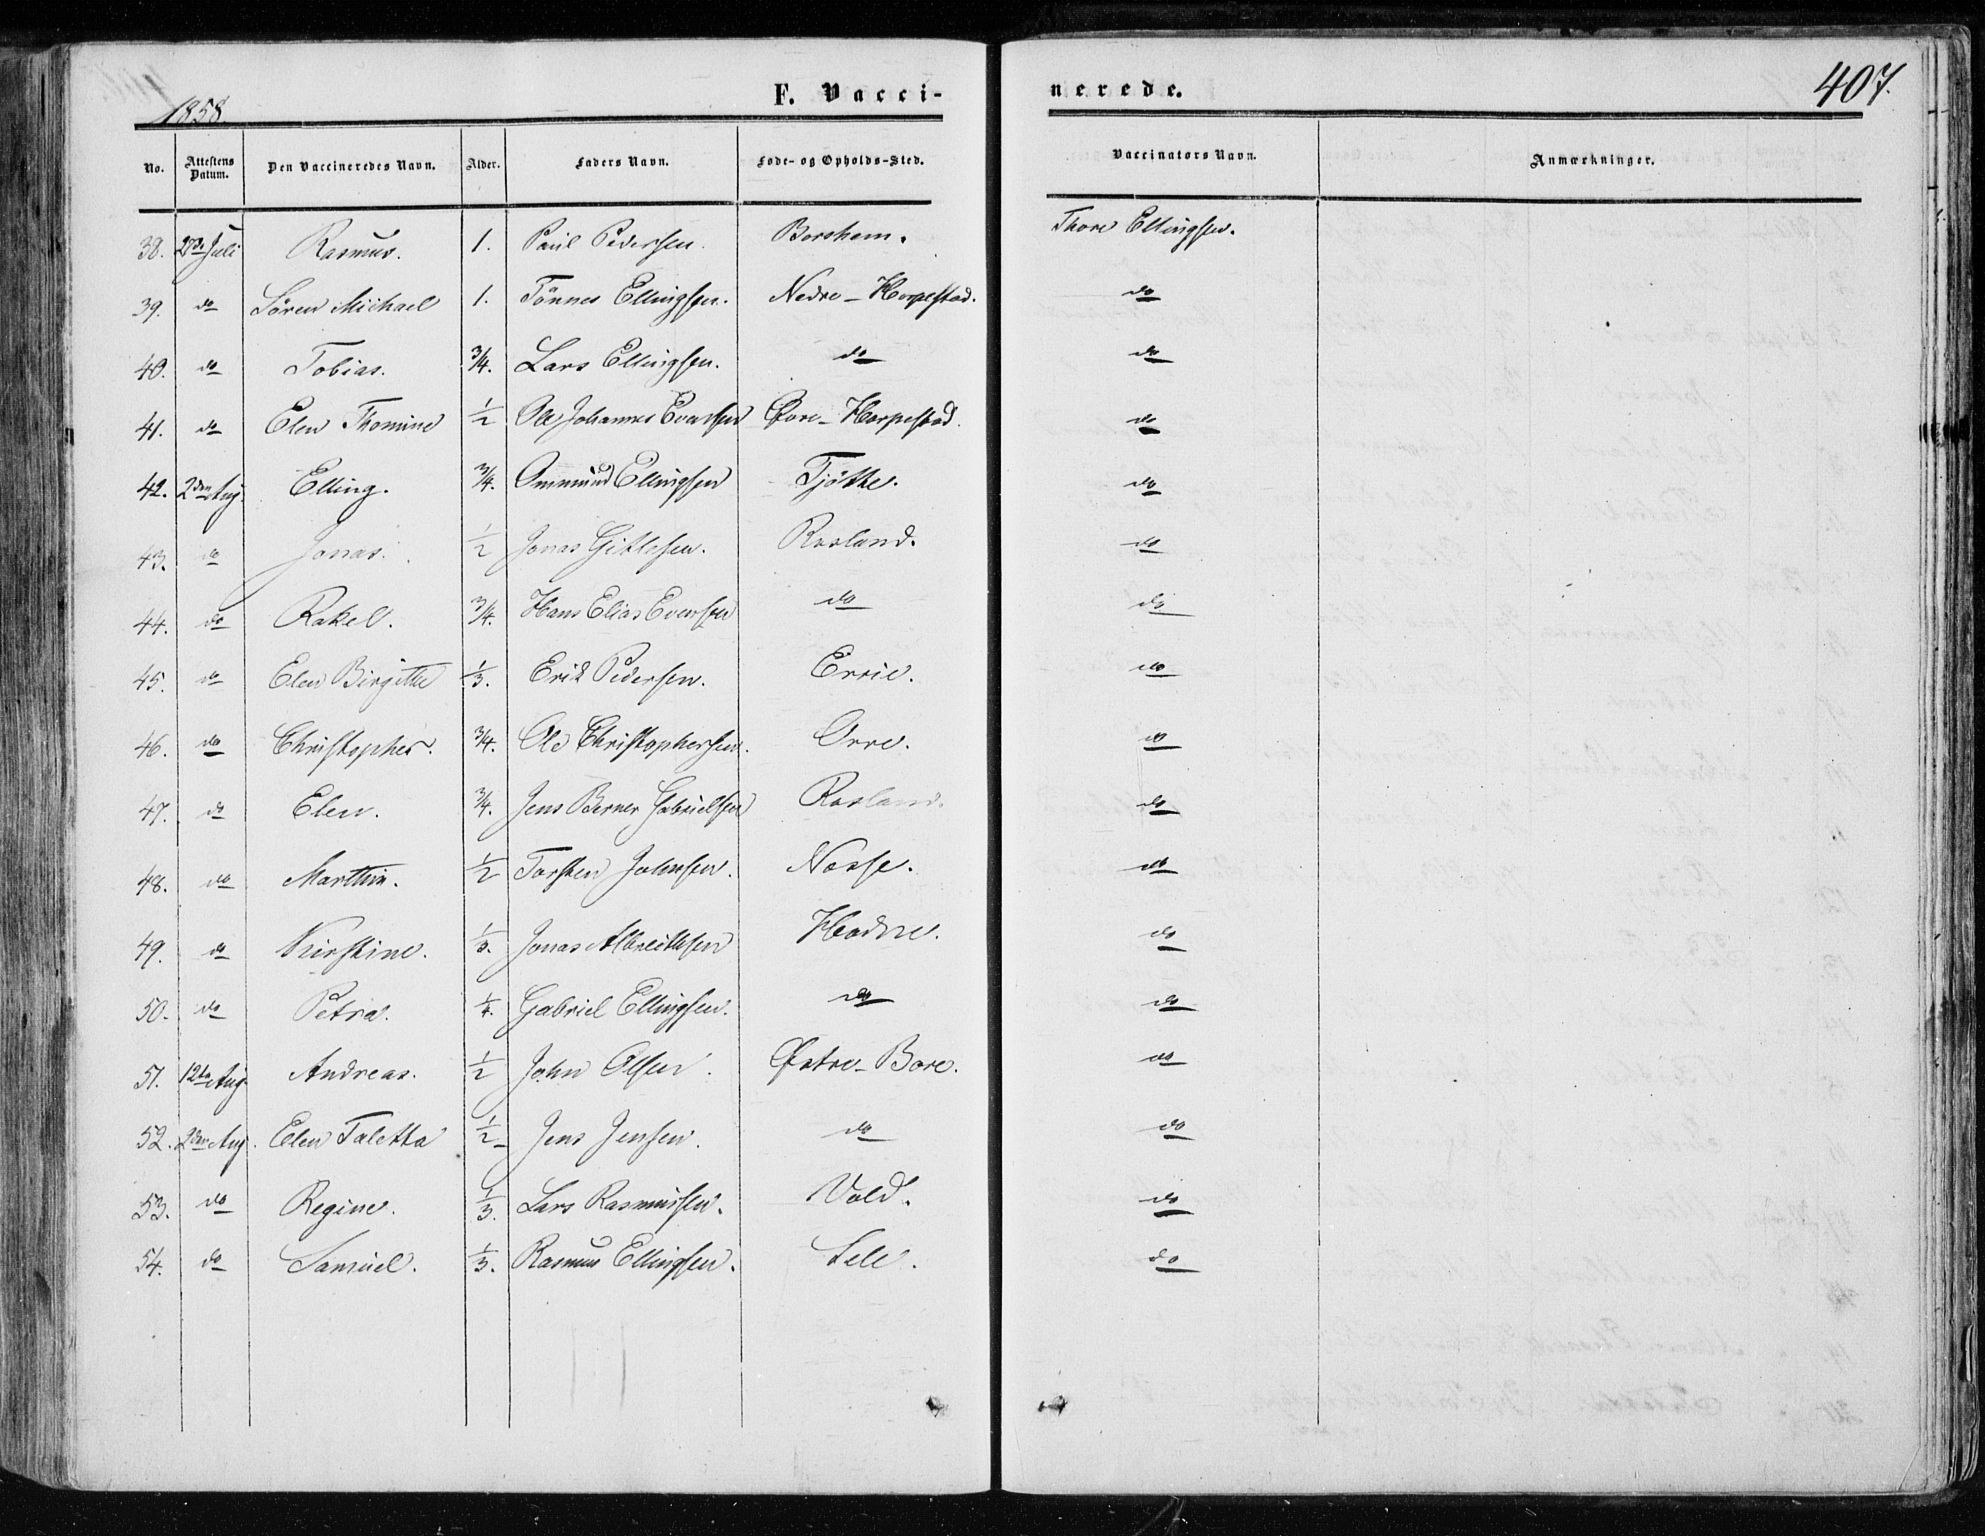 1858.
F. Vacci-
nerede.
407.
No. Attestens Datum. Den Vaccineredes Navn. Alder. Faders Navn. Føde- og Opholds-Sted. Vaccinators Navn. Anmærkninger.
38. Juli Rasmus. 1. Paul Pedersen. Borshem. Thore Ellingsen.
39. do Søren Michael 1. Tønnes Ellingsen. Nedre-Horpestad. do
40. do Tobias. 3/4. Lars Ellingsen. do do
41. do Elen Thomine 1/2 Ole Johannes Evertsen Øvre-Horpestad. do
42. 2den Aug. Elling. 3/4. Ommund Ellingsen Tjøtte. do
43. do Jonas. 1/2 Jonas Gitlesen. Rosland. do
44. do Rakel. 3/4. Hans Elias Evensen do do
45. do Elen Birgitte 1/3. Erik Pedersen. Errie. do
46. do Christopher. 3/4. Ole Christophersen. Orre. do
47. do Elen. 3/4. Jens Berner Gabrielsen Rosland. do
48. do Marthin. 1/2 Torsten Johnsen. Norse. do
49. do Kirstine. Jonas Albrectsen Hodne. do
50. do Petra. 1/4. Gabriel Ellingsen. do do
51. 12te Aug. Andreas. 1/2 John Olsen. Østre-Bore. do
52. 2den Aug. Elen Taletta 1/2 Jens Jensen. do do
53. do Regine. 1/3. Lars Rasmussen. Vold. do
54. do Samuel. 1/3. Rasmus Ellingsen. Lele. do